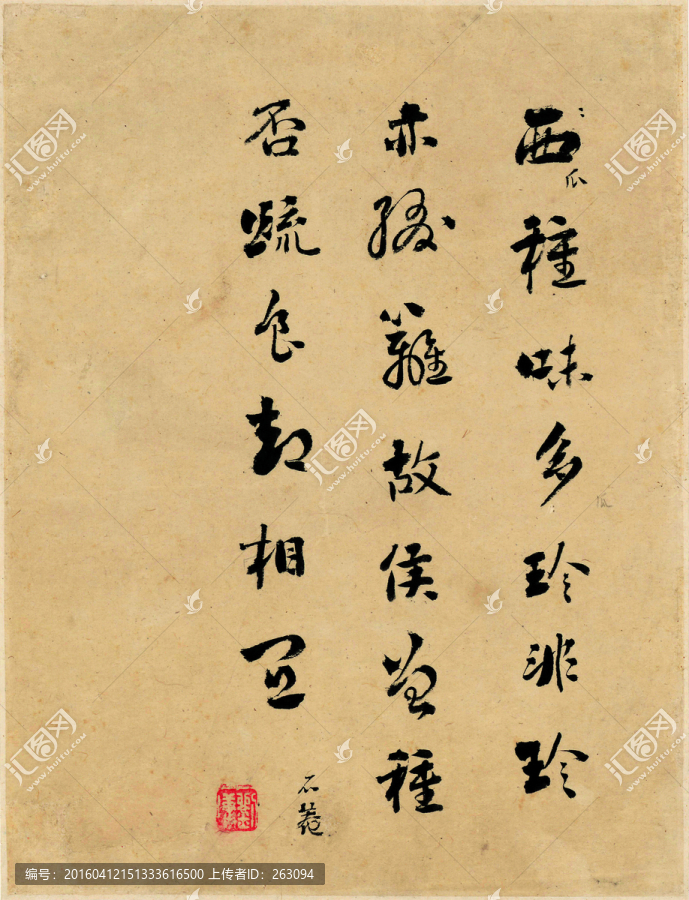 西瓜種味多珍非珍
亦綴籬故侯曾種
否疏食相宜
石菴
汇图网
www.huitu.com
编号：20160412151333616500 上传者ID：263094